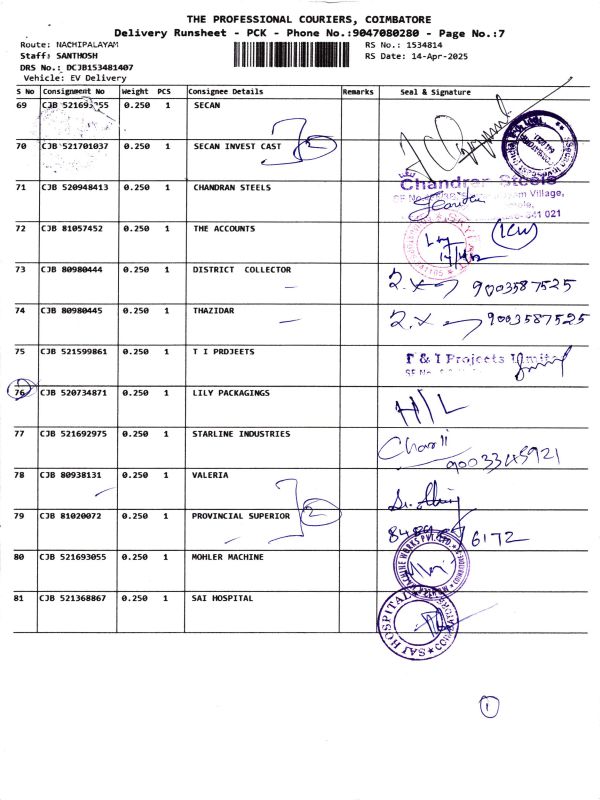 THE PROFESSIONAL COURIERS, COIMBATORE
Delivery Runsheet - PCK - Phone No.:9047080280 - Page No.:7
Route: NACHIPALAYAM RS No.: 1534814
Staff: SANTHOSH RS Date: 14-Apr-2025
DRS No.: DCJB153481407
Vehicle: EV Delivery
S No Consignment No Weight PCS Consignee Details Remarks Seal & Signature
69 CJB 521693055 0.250 1 SECAN
70 CJB 521701037 0.250 1 SECAN INVEST CAST 2
71 CJB 520948413 0.250 1 CHANDRAN STEELS Chandran Steels
Village,
641 021
72 CJB 81057452 0.250 1 THE ACCOUNTS
73 CJB 80980444 0.250 1 DISTRICT COLLECTOR 9003587525
74 CJB 80980445 0.250 1 THAZIDAR 9003587525
75 CJB 521599861 0.250 1 T I PRDJEETS T & I Projects Limited
76 CJB 520734871 0.250 1 LILY PACKAGINGS H/L
77 CJB 521692975 0.250 1 STARLINE INDUSTRIES
9003345921
78 CJB 80938131 0.250 1 VALERIA
79 CJB 81020072 0.250 1 PROVINCIAL SUPERIOR 2 6172
80 CJB 521693055 0.250 1 MOHLER MACHINE
81 CJB 521368867 0.250 1 SAI HOSPITAL SAI HOSPITAL
1